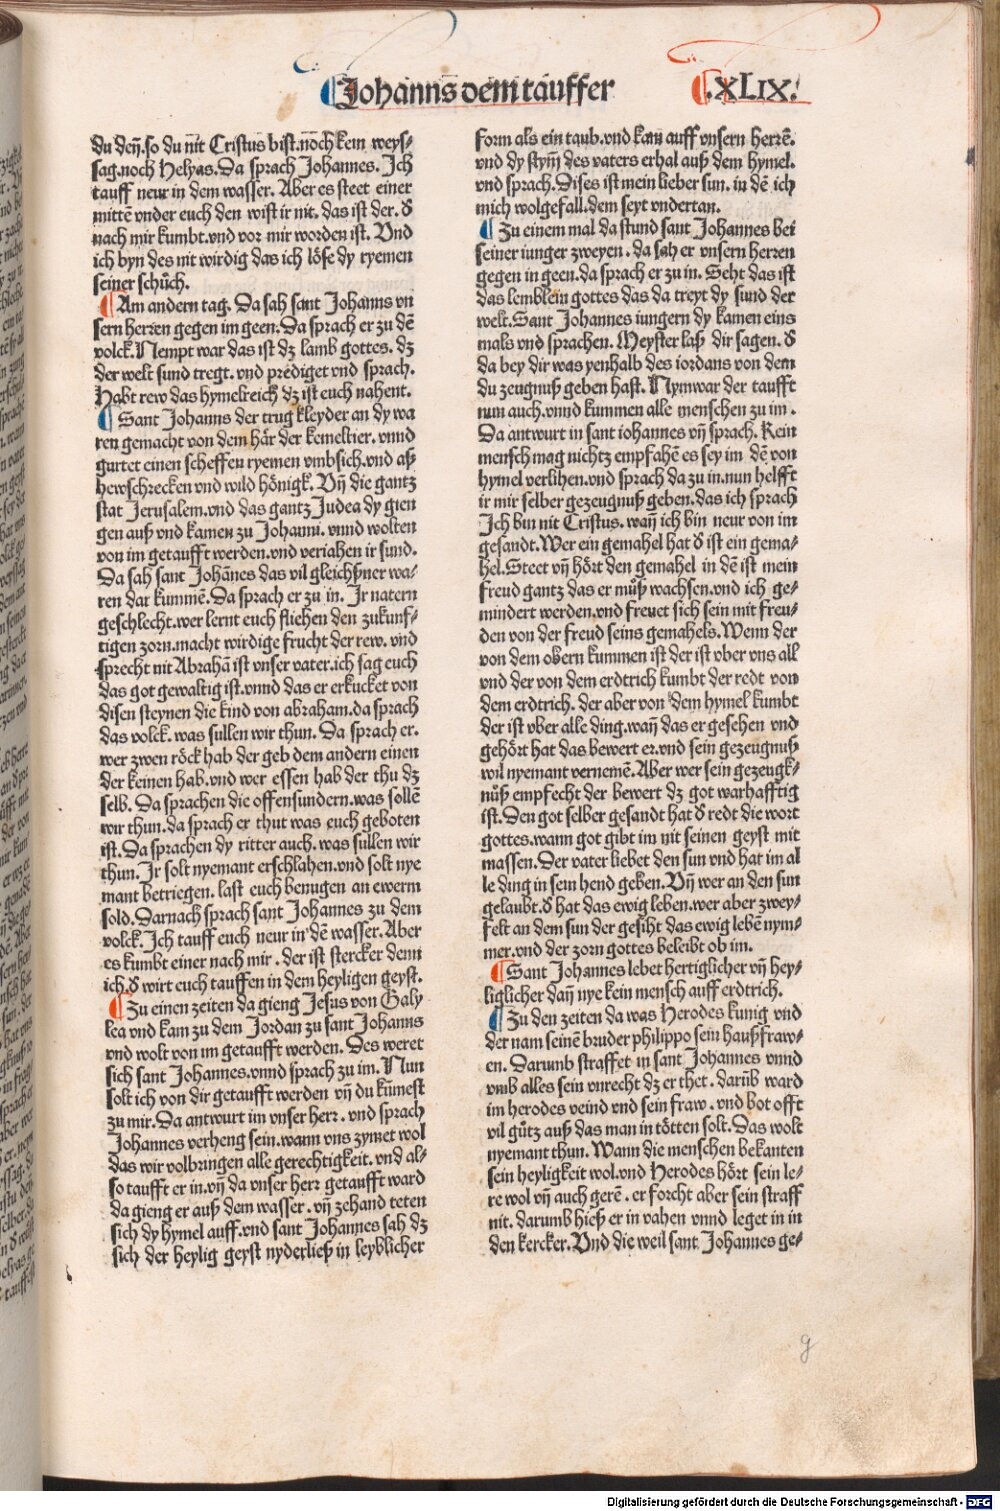 ¶Johanns̄ dem tauffer
¶.XLIX.
du deñ. so du nit Cristus bist. noch kein weyſ-
sag. noch Helyas. Da sprach Johannes. Ich
tauff neur in dem wasser. Aber es steet einer
mittē vnder euch den wist ir nit. das ist der. d̕
nach mir kumbt. vnd vor mir worden ist. Vnd
ich byn des nit wirdig das ich löse dy ryemen
seiner schůch.
¶ Am andern tag. Da sah sant Johanns vn
sern herren gegen im geen. Da sprach er zu dē
volck. Nempt war das ist dz lamb gottes. dz
der welt sund tregt. vnd prediget vnd sprach.
Habt rew das hymelreich dz ist euch nahent.
¶ Sant Johanns der trug kleyder an dy wa
ren gemacht von dem här der kemeltier. vnnd
gurtet einen scheffen ryemen vmbsich. vnd aß
hewschrecken vnd wild hönigk. Vñ die gantz
stat Jerusalem. vnd das gantz Judea dy gien
gen auß vnd kamen zu Johanni. vnnd wolten
von im getaufft werden. vnd veriahen ir sund.
Da sah sant Johānes das vil gleichßner wa-
ren dar kummē. Da sprach er zu in. Ir natern
geschlecht. wer lernt euch fliehen den zukunf-
tigen zorn. macht wirdige frucht der rew. vnd
sprecht nit Abrahā ist vnser vater. ich sag euch
das got gewaltig ist. vnnd das er erkucket von
disen steynen die kind von abraham. da sprach
das volck. was sullen wir thun. Da sprach er.
wer zwen röck hab der geb dem andern einen
der keinen hab. vnd wer essen hab der thu dz
selb. Da sprachen die offensundern. was sollē
wir thun. da sprach er thut was euch geboten
ist. Da sprachen dy ritter auch. was sullen wir
thun. Ir solt nyemant erschlahen. vnd solt nye
mant betriegen. last euch benugen an ewerm
sold. Darnach sprach sant Johannes zu dem
volck. Ich tauff euch neur in dē wasser. Aber
es kumbt einer nach mir. der ist stercker denn
ich. d̕ wirt euch tauffen in dem heyligen geyst.
¶ Zu einen zeiten da gieng Jesus von Galy
lea vnd kam zu dem Jordan zu sant Johanns
vnd wolt von im getaufft werden. Des weret
sich sant Johannes. vnnd sprach zu im. Nun
solt ich von dir getaufft werden vñ du kūmest
zu mir. Da antwurt im vnser herr. vnd sprach
Johannes verheng sein. wann vns zymet wol
das wir volbringen alle gerechtigkeit. vnd al-
so taufft er in. vñ da vnser herr getaufft ward
da gieng er auß dem wasser. vñ zehand teten
sich dy hymel auff. vnd sant Johannes sah dz
sich der heylig geyst nyderließ in leyblicher
form als ein taub. vnd kam auff vnsern herrē.
vnd dy stym̄ des vaters erhal auß dem hymel.
vnd sprach. Dises ist mein lieber sun. in dē ich
mich wolgefall. dem seyt vndertan.
¶ Zu einem mal da stund sant Johannes bei
seiner iunger zweyen. da sah er vnsern herren
gegen in geen. da sprach er zu in. Seht das ist
das lemblein gottes das da treyt dy sund der
welt. Sant Johannes iungern dy kamen eins
mals vnd sprachen. Meyster laß dir sagen. d̕
da bey dir was yenhalb des iordans von dem
du zeugnuß geben hast. Nymwar der taufft
nun auch. vnnd kummen alle menschen zu im.
Da antwurt in sant iohannes vñ sprach. Kein
mensch mag nichtz empfahē es sey im dē von
hymel verlihen. vnd sprach da zu in. nun helfft
ir mir selber gezeugnuß geben. das ich sprach
Ich bin nit Cristus. wañ ich bin neur von im
gesandt. Wer ein gemahel hat d̕ ist ein gema-
hel. Steet vñ hört den gemahel in dē ist mein
freud gantz das er můß wachsen. vnd ich ge-
mindert werden. vnd frewet sich sein mit freu-
den von der freud seins gemahels. Wenn der
von dem obern kummen ist der ist vber vns all
vnd der von dem erdtrich kumbt der redt von
dem erdtrich. der aber von dem hymel kumbt
der ist vber alle ding. wañ das er gesehen vnd
gehört hat das bewert er. vnd sein gezeugnuß
wil nyemant vernemē. Aber wer sein gezeugk-
nůß empfecht der bewert dz got warhafftig
ist. Den got selber gesandt hat d̕ redt die wort
gottes. wann got gibt im nit seinen geyst mit
massen. Der vater liebet den sun vnd hat im al
le ding in sein hend geben. Vñ wer an den sun
gelaubt. d̕ hat das ewig leben. wer aber zwey-
felt an dem sun der gesiht das ewig lebē nym-
mer. vnd der zorn gottes beleibt ob im.
¶ Sant Johannes lebet hertiglicher vñ hey-
liglicher dañ nye kein mensch auff erdtrich.
¶ Zu den zeiten da was Herodes kunig vnd
der nam seinē bruder philippo sein haußfraw-
en. Darumb straffet in sant Johannes vnnd
vmb alles sein vnrecht dz er thet. darūb ward
im herodes veind vnd sein fraw. vnd bot offt
vil gůtz auß das man in tötten solt. Das wolt
nyemant thun. Wann die menschen bekanten
sein heyligkeit wol. vnd Herodes hört sein le-
re wol vñ auch gerē. er forcht aber sein straff
nit. darumb hieß er in vahen vnnd leget in in
den kercker. Vnd die weil sant Johannes ge-
g
Digitalisierung gefördert durch die Deutsche Forschungsgemeinschaft - DFG